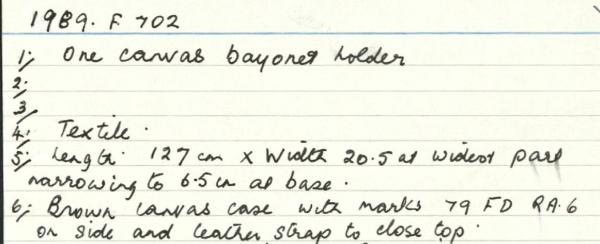 1989. F 702
1; One canvas bayonet holder
2;
3
4; Textile.
5; Length: 127 cm x Width 20.5 at widest part
narrowing to 6.5 cm at base.
6; Brown canvas case with marks 79 FD RA.6
on side and leather strap to close top.